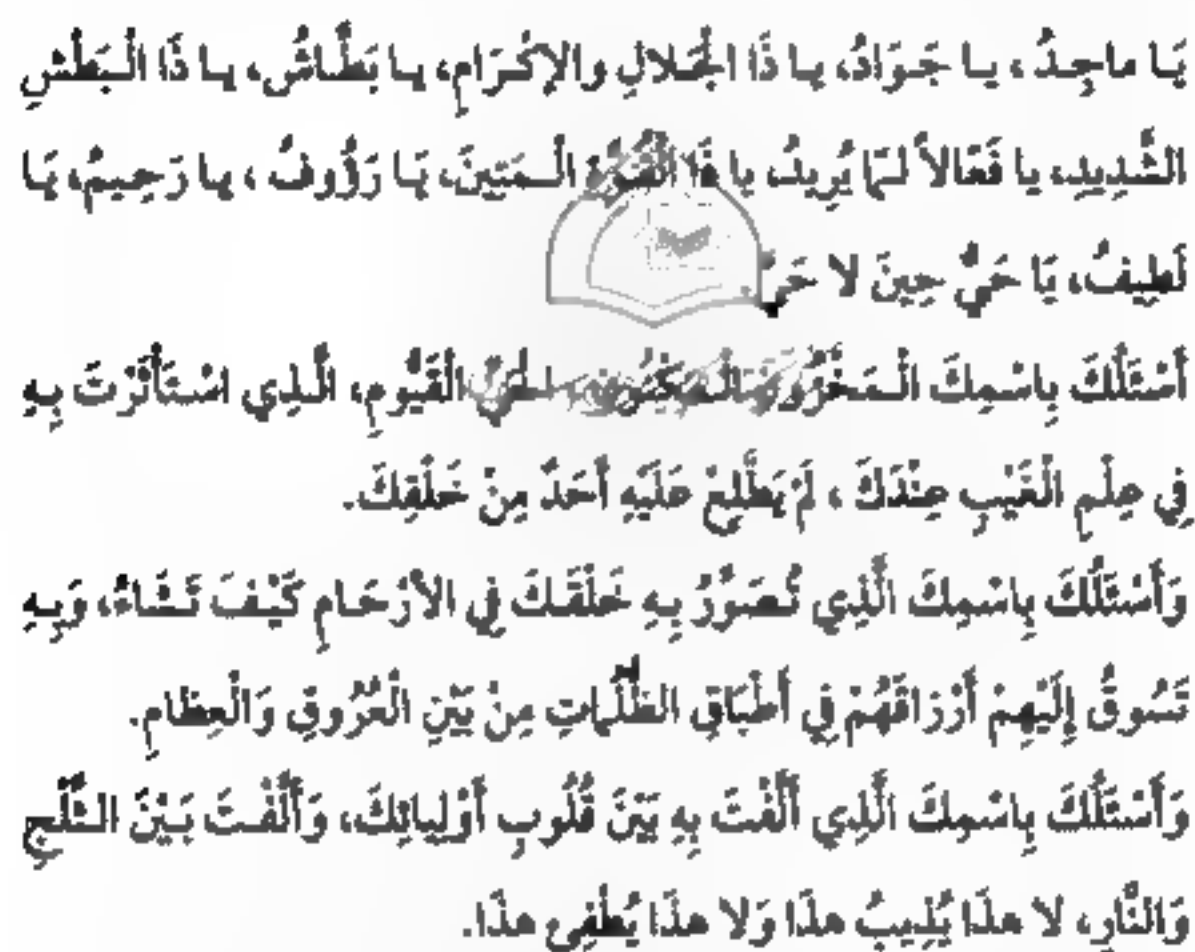 يَا ماجِدُ، يا جَوَادُ، يا ذَا الْجَلالِ والإكْرَامِ، يا بَطَّاشُ، يا ذَا الْبَطْشِ
الشَّدِيدِ، يا فَعَّالاً لمَا يُرِيدُ، يا ذَا الْقُوَّةِ الْمَتِينَ، يَا رَؤُوفُ، يا رَحِيمُ، يَا
لَطِيفُ، يَا حَيُّ حِينَ لا حَيَّ.
أسْئَلُكَ بِاسْمِكَ الْمَخْزُونِ الْقَيُّومِ، الَّذِي اسْتَأْثَرْتَ بِهِ
فِي عِلْمِ الْغَيْبِ عِنْدَكَ، لَمْ يَطَّلِعْ عَلَيْهِ أحَدٌ مِنْ خَلْقِكَ.
وَأسْئَلُكَ بِاسْمِكَ الَّذِي تُصَوِّرُ بِهِ خَلْقَكَ فِي الأرْحَامِ كَيْفَ تَشَاءُ، وَبِهِ
تَسُوقُ إِلَيْهِمْ أرْزَاقَهُمْ فِي أطْبَاقِ الظُّلُمَاتِ مِنْ بَيْنِ الْعُرُوقِ وَالْعِظامِ.
وَأسْئَلُكَ بِاسْمِكَ الَّذِي ألَّفْتَ بِهِ بَيْنَ قُلُوبِ أوْلِيائِكَ، وَألَّفْتَ بَيْنَ الثَّلْجِ
وَالنَّارِ، لا هذَا يُذِيبُ هذَا وَلا هذَا يُطْفِي هذَا.